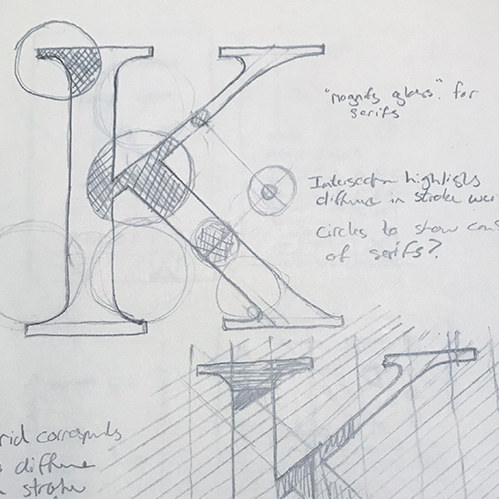 K
"magnify glass" for
serifs
Intersection highlights
difference in stroke wei
circles to show cons
of serifs?
K
rid corresponds
difference
stroke